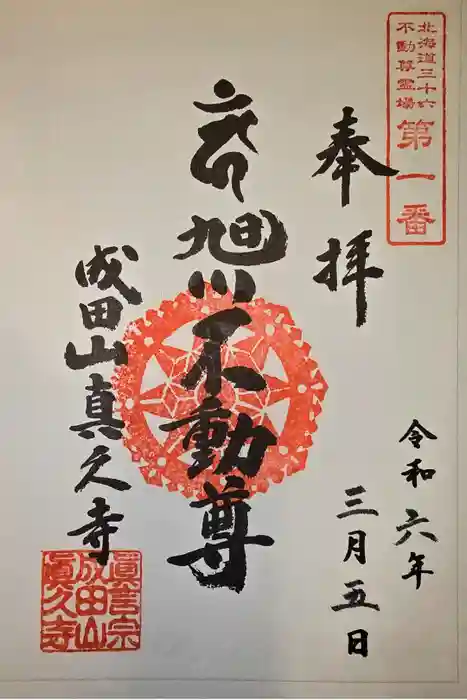 北海道三十六
不動尊霊場
第一番
奉拝
令和六年
三月五日
旭川不動尊
成田山真久寺
眞言宗
成田山
眞久寺